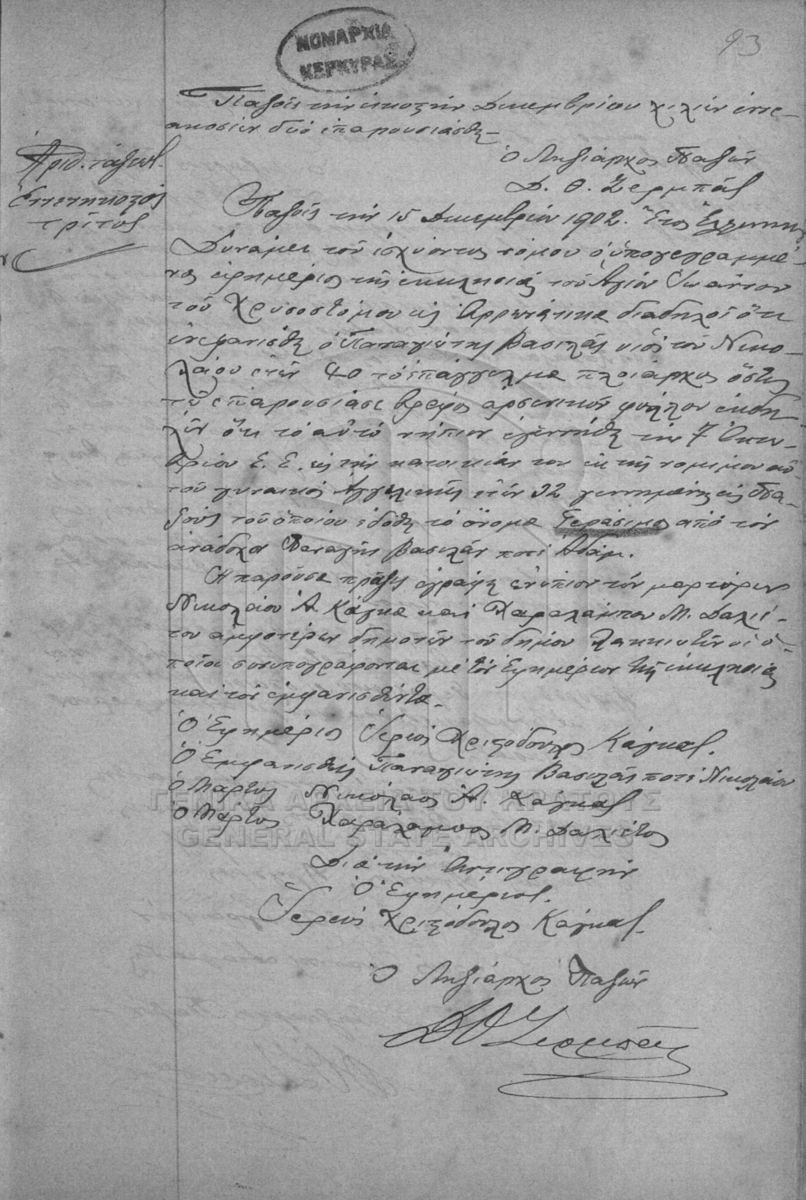 ΝΟΜΑΡΧΙΑ
ΚΕΡΚΥΡΑΣ
93
Παξοῖς τὴν εἰκοστὴν Δεκεμβρίου χιλίων ἐννε-
ακοσίων δύο ἐπαρουσιάσθη
Ὁ Ληξίαρχος Παξῶν
Δ. Θ. Ζερμπᾶς
Ἀριθ. τάξεως
Ἐνενηκοστὸς
τρίτος
Παξοῖς τὴν 15 Δεκεμβρίου 1902. Ἔτος
Δυνάμει τοῦ ἰσχύοντος νόμου ὁ ὑπογεγραμμέ-
νος ἐφημέριος τῆς ἐκκλησίας τοῦ Ἁγίου Ἰωάννου
τοῦ Χρυσοστόμου εἰς διαδηλοῖ ὅτι
ἐνεφανίσθη ὁ Παναγιώτης Βασιλᾶς υἱὸς τοῦ Νικο-
λάου ἐτῶν 40 τὸ ἐπάγγελμα πλοίαρχος ὅστις
τῷ ἐπαρουσίασε βρέφος ἀρσενικοῦ φύλλου ἐκδη-
λῶν ὅτι τὸ αὐτὸ νήπιον ἐγεννήθη τὴν 7 Ὀκτω-
βρίου Ε. Ε. εἰς τὴν κατοικίαν του ἐκ τῆς νομίμου αὐ-
τοῦ γυναικὸς Ἀγγελικῆς ἐτῶν 32 γεννημένης εἰς Πα-
ξοὺς τοῦ ὁποίου ἐδόθη τὸ ὄνομα Γεράσιμος ἀπὸ τὸν
ἀνάδοχον Παναγῆν Βασιλᾶν ποτὲ Ἀδάμ.
Ἡ παροῦσα πρᾶξις ἐγράφη ἐνώπιον τῶν μαρτύρων
Νικολάου Ἀ. Κάγκα καὶ Χαραλάμπου Μ. Δαλιέ-
του ἀμφοτέρων δημοτῶν τοῦ δήμου Λακκιωτῶν οἱ ὁ-
ποῖοι συνυπογράφονται μὲ τὸν Ἐφημέριον τῆς ἐκκλησίας
καὶ τὸν ἐμφανισθέντα.
Ὁ Ἐφημέριος Ἱερεὺς Χριστόδουλος Κάγκας.
Ὁ Ἐμφανισθεὶς Παναγιώτης Βασιλᾶς ποτὲ Νικολάου
Ὁ Μάρτυς Νικόλαος Ἀ. Κάγκας
Ὁ Μάρτυς Χαράλαμπος Μ. Δαλιέτος
ΓΕΝΙΚΑ ΑΡΧΕΙΑ ΤΟΥ ΚΡΑΤΟΥΣ
GENERAL STATE ARCHIVES
Διὰ τὴν ἀντιγραφὴν
Ὁ Ἐφημέριος.
Ἱερεὺς Χριστόδουλος Κάγκας.
Ὁ Ληξίαρχος Παξῶν
Δ Θ Ζερμπᾶς